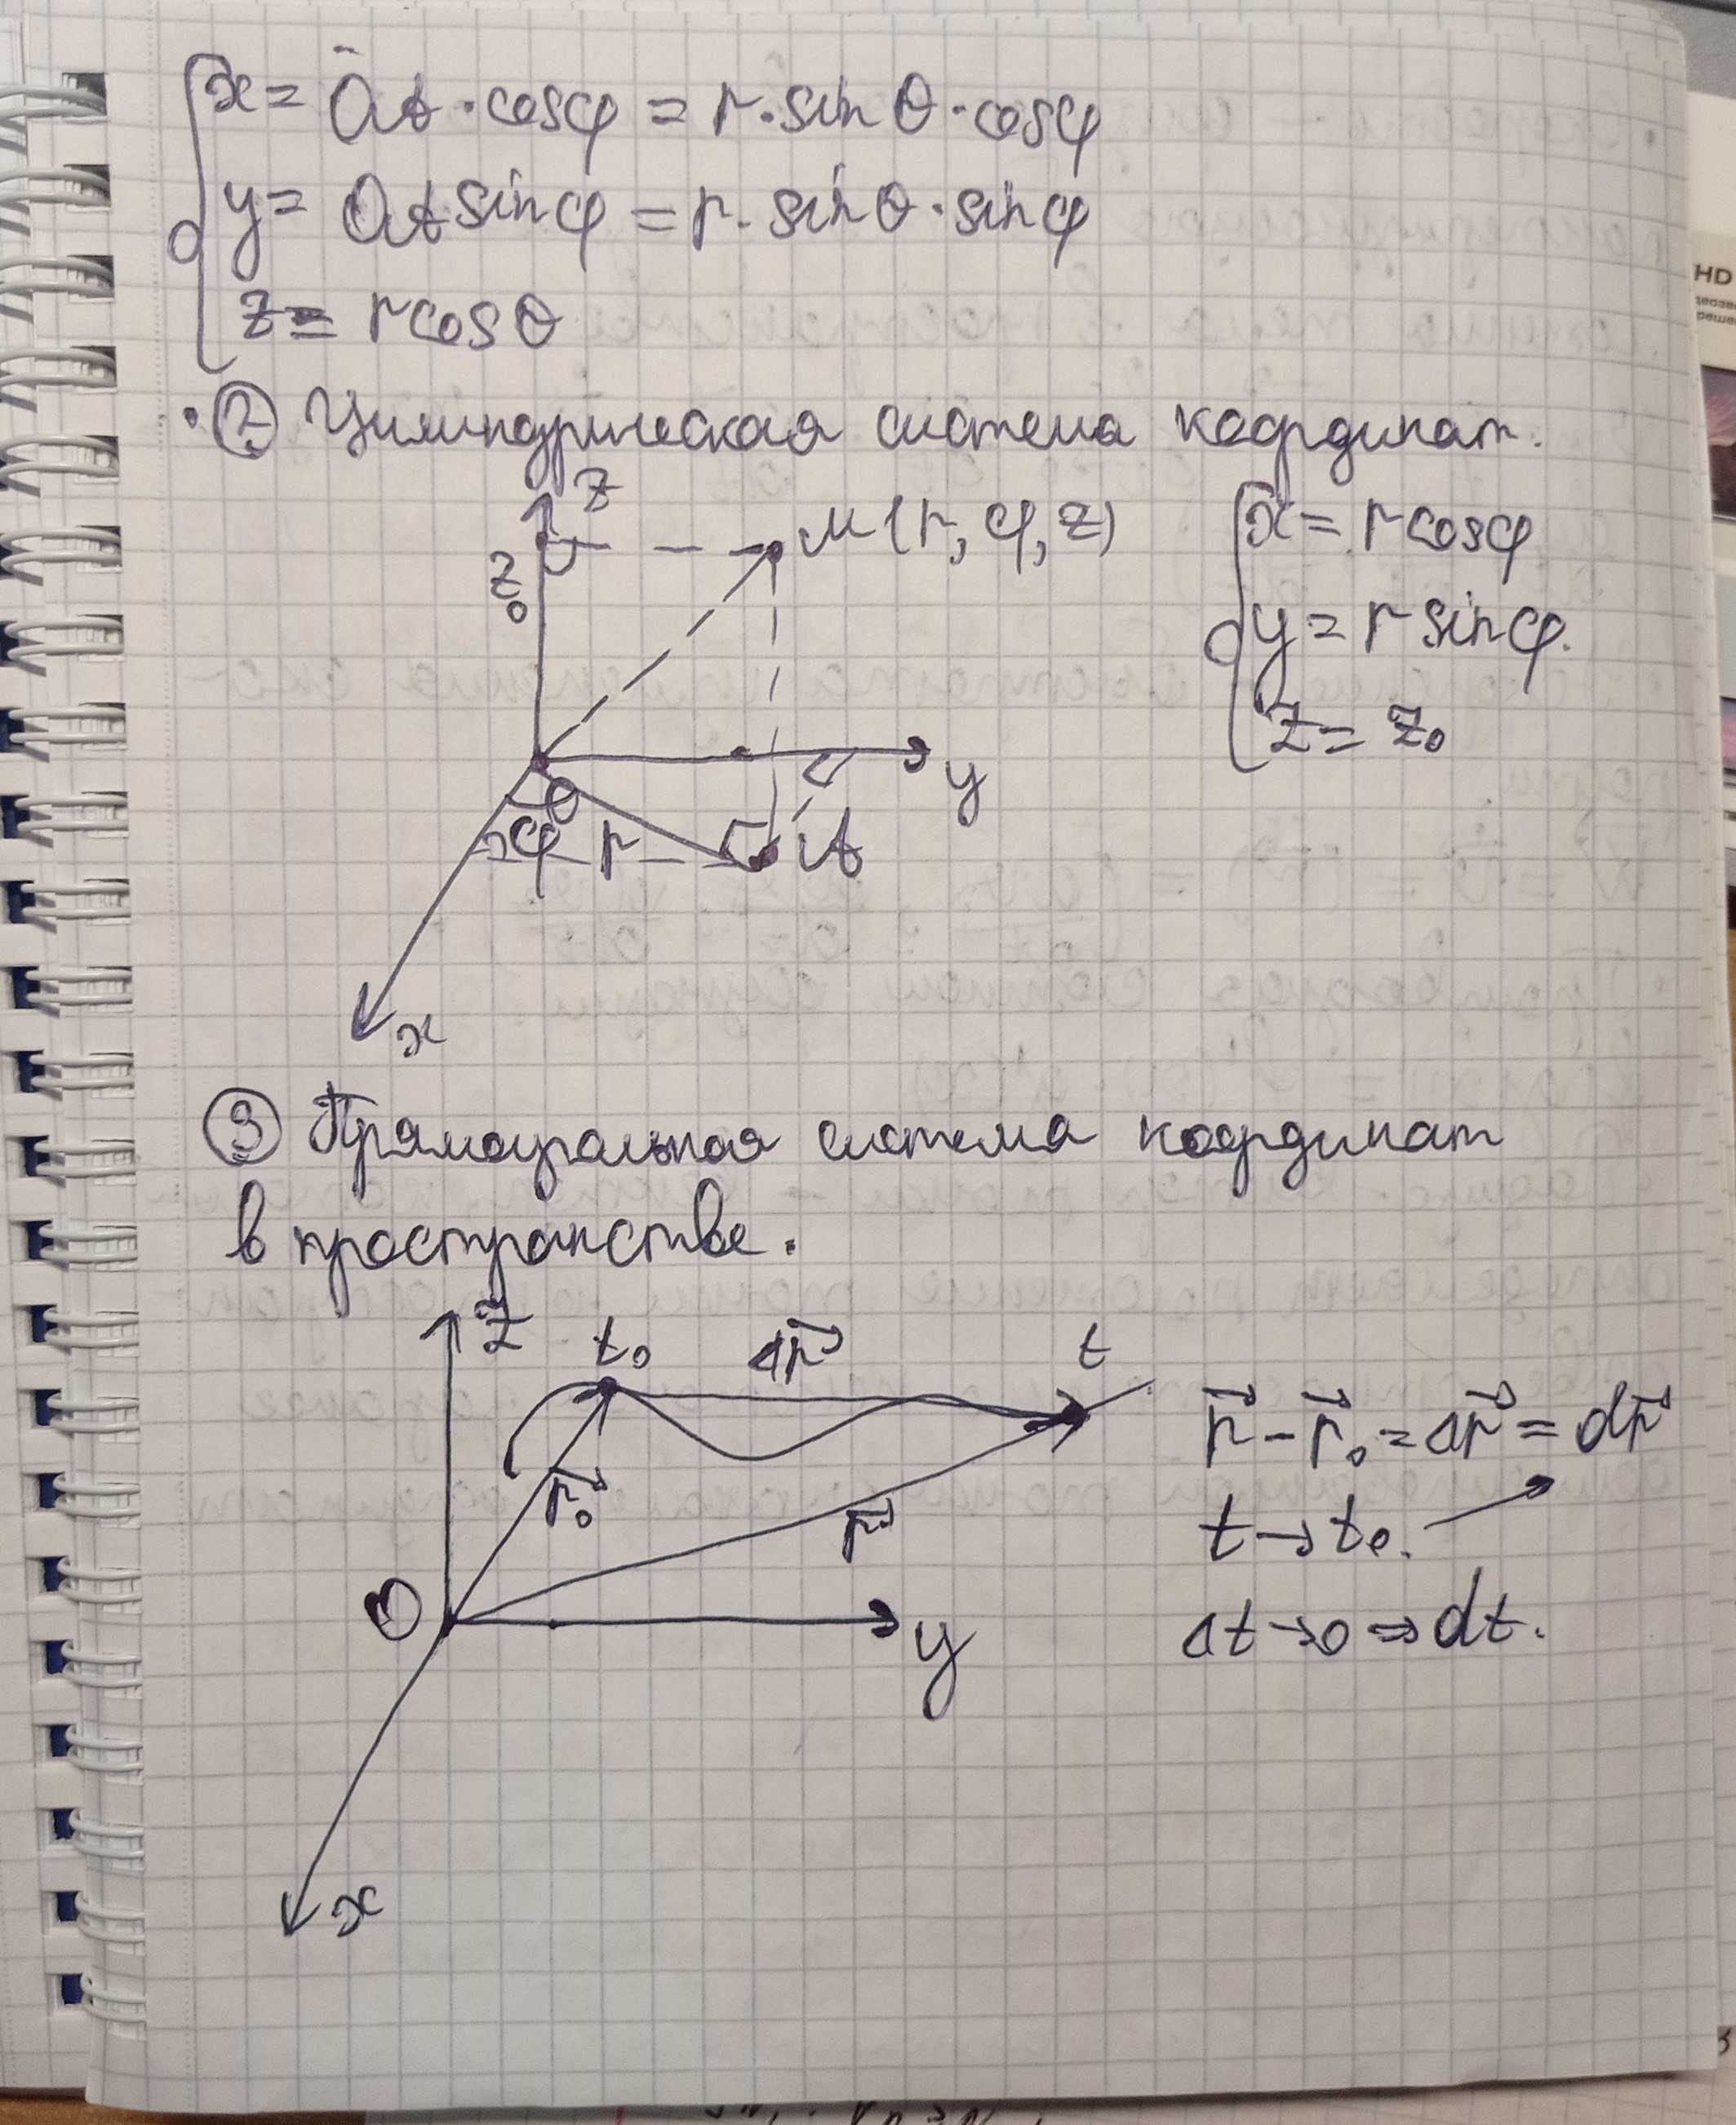 x = OA · cosφ = r · sin θ · cosφ
y = OA sinφ = r · sinθ · sinφ
z = r cosθ
· ② Цилиндрическая система координат.
z
M (r, φ, z)
z₀
x = r cosφ
y = r sinφ.
z = z₀
y
O
φ r A
x
③ Прямоугольная система координат
в пространстве.
z
t₀ Δr⃗ t
r⃗ - r⃗₀ = Δr⃗ = dr⃗
r⃗₀ r⃗
t → t₀.
O
y
Δt → 0 ⇒ dt.
x
HD